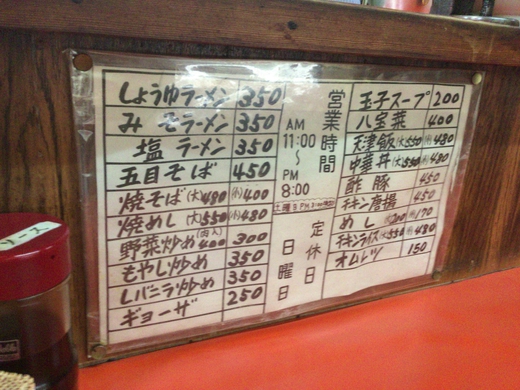 しょうゆラーメン 350
みそラーメン 350
塩ラーメン 350
五目そば 450
焼そば(大)480 (小)400
焼めし(大)550 (小)480
野菜炒め(肉入)400 300
もやし炒め 350
レバニラ炒め 350
ギョーザ 250
営業時間
AM
11:00
〜
PM
8:00
定休日
日曜日
玉子スープ 200
八宝菜 400
天津飯(大)550 (小)480
中華丼(大)550 (小)480
酢豚 450
チキン唐揚 450
めし(大)200 (小)170
チキンライス(大)550 (小)480
オムレツ 150
ソース